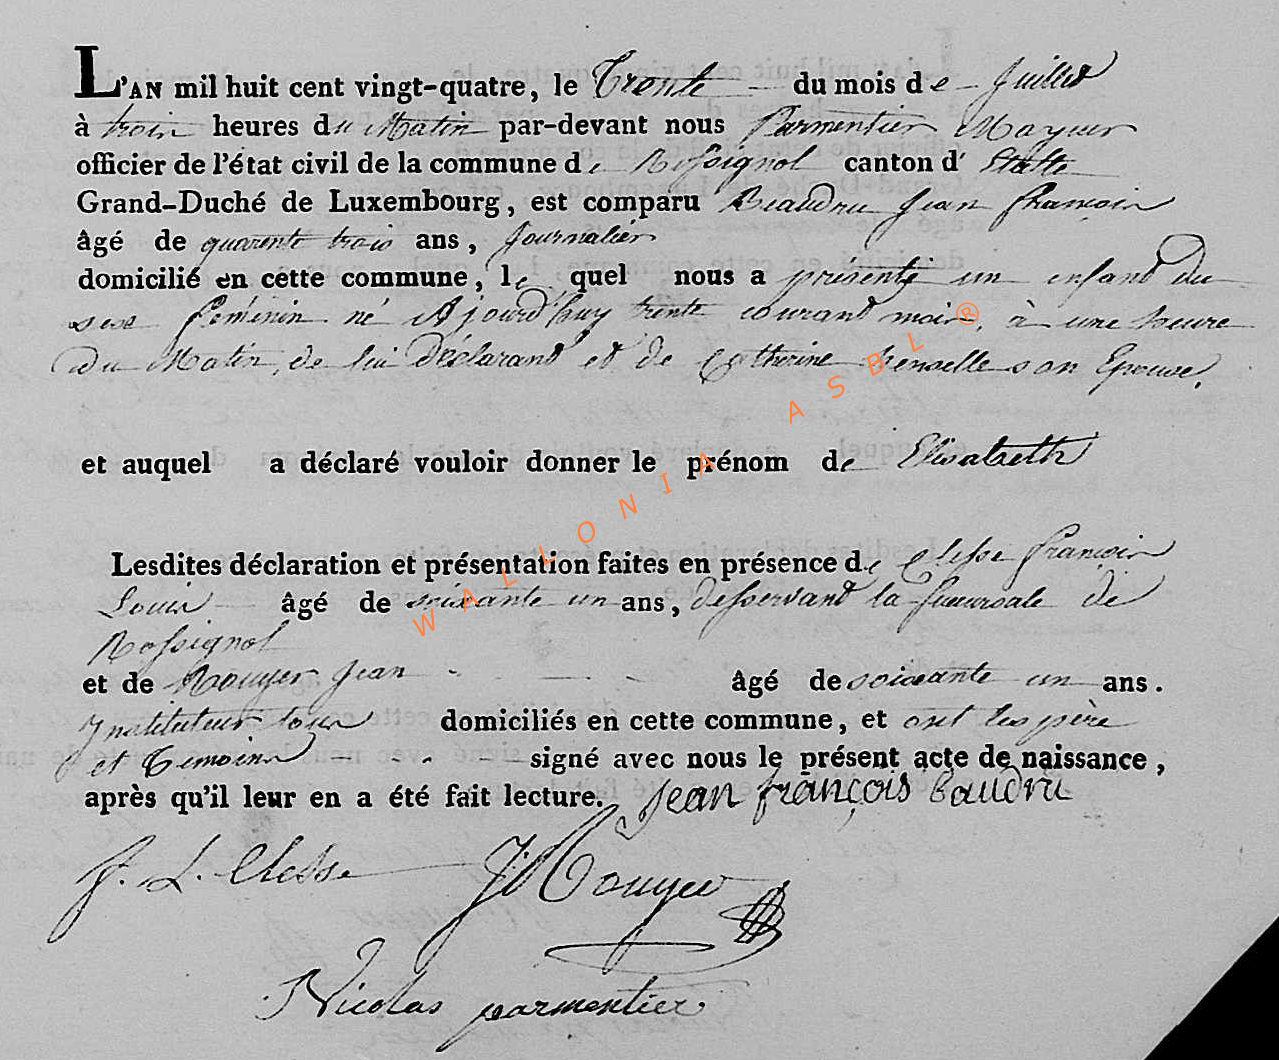 L'AN mil huit cent vingt-quatre, le Trente du mois de Juillet
à trois heures du Matin par-devant nous Parmentier Mayeur
officier de l'état civil de la commune de Rossignol canton d'Etalle
Grand-Duché de Luxembourg, est comparu Beaudru Jean françois
âgé de quarente trois ans, Journalier
domicilié en cette commune, le quel nous a présenté un enfant du
sexe féminin né Ajourd'huy trente courant mois, à une heure
du Matin, de lui Déclarant et de Catherine henselle son Epouse,
et auquel a déclaré vouloir donner le prénom de Elisabeth
Lesdites déclaration et présentation faites en présence de Clesse françois
Louis âgé de soixante un ans, desservant la succursale de
Rossignol
et de Rouyer Jean âgé de soixante un ans.
Instituteur tous domiciliés en cette commune, et ont les père
et Temoins signé avec nous le présent acte de naissance,
après qu'il leur en a été fait lecture. Jean françois baudru
f. L. Clesse J Rouyer
Nicolas parmentier
WALLONIA ASBL ®